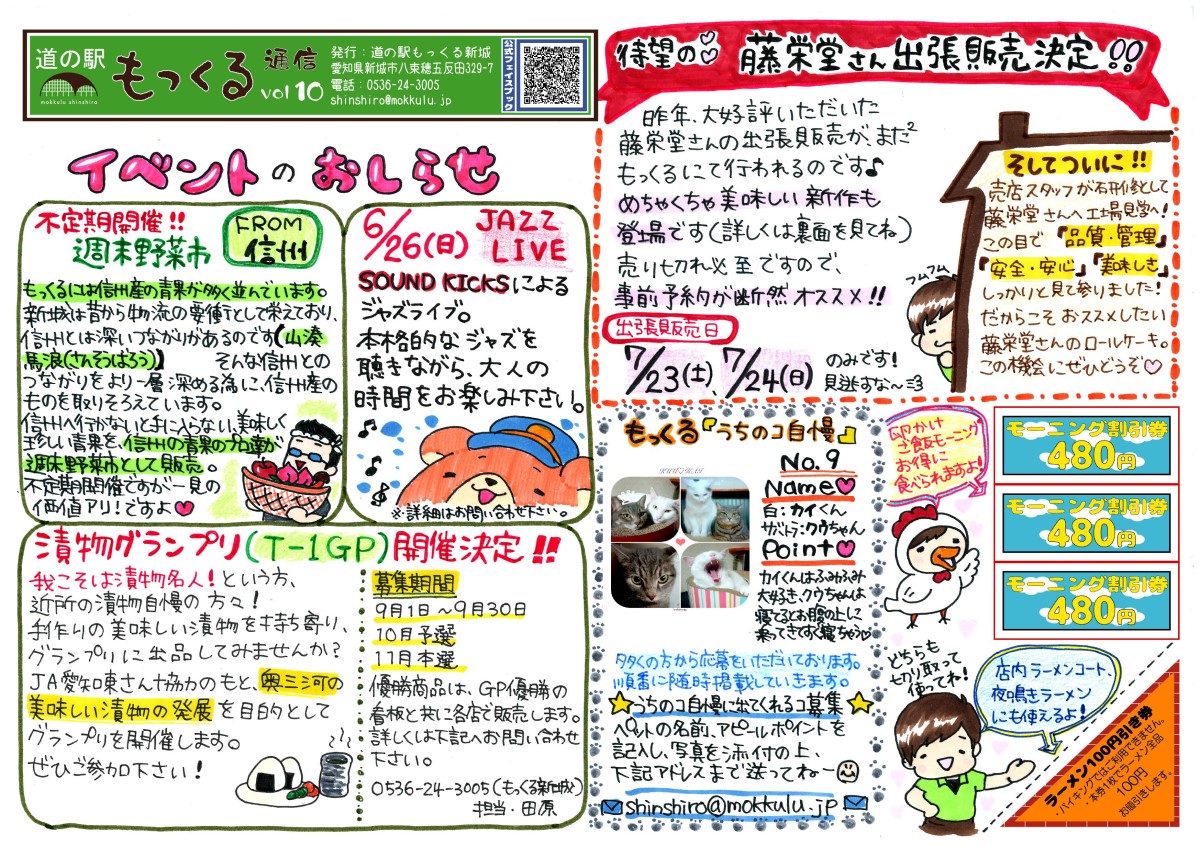 道の駅
mokkulu shinshiro
もっくる通信
vol 10
発行：道の駅もっくる新城
愛知県新城市八束穂五反田329-7
電話：0536-24-3005
shinshiro@mokkulu.jp
公式フェイスブック
イベントのおしらせ
不定期開催!!
週末野菜市
FROM
信州
もっくるには信州産の青果が多く並んでいます。
新城は昔から物流の要衝として栄えており、
信州とは深いつながりがあるのです(山湊
馬浪(さんそうばろう)) そんな信州との
つながりをより一層深める為に、信州産の
ものを取りそろえています。
信州へ行かないと手に入らない、美味しく
珍しい青果を、信州の青果のプロ達が
週末野菜市として販売。
不定期開催ですが一見の
価値アリ!ですよ♥
6/26(日) JAZZ
LIVE
SOUND KICKSによる
ジャズライブ。
本格的なジャズを
聴きながら、大人の
時間をお楽しみ下さい。
※詳細はお問い合わせ下さい。
漬物グランプリ(T-1GP)開催決定!!
我こそは漬物名人!という方、
近所の漬物自慢の方々!
手作りの美味しい漬物を持ち寄り、
グランプリに出品してみませんか?
JA愛知東さん協力のもと、奥三河の
美味しい漬物の発展を目的として
グランプリを開催します。
ぜひご参加下さい!
募集期間
9月1日~9月30日
10月予選
11月本選
優勝商品は、GP優勝の
看板と共に各店で販売します。
詳しくは下記へお問い合わせ
下さい。
0536-24-3005(もっくる新城)
担当・田原
待望の♡ 藤栄堂さん出張販売決定!!
昨年、大好評いただいた
藤栄堂さんの出張販売が、まだ2
もっくるにて行われるのです♪
めちゃくちゃ美味しい新作も
登場です(詳しくは裏面を見てね)
売り切れ必至ですので、
事前予約が断然オススメ!!
出張販売日
7/23(土)、7/24(日)のみです!
見逃すな~=3
そしてついに!!
売店スタッフが研修として
藤栄堂さんへ工場見学へ!
この目で『品質・管理』
『安全・安心』『美味しさ』
しっかりと見て参りました!
だからこそおススメしたい
藤栄堂さんのロールケーキ。
この機会にぜひどうぞ♡
フムフム
もっくる『うちのコ自慢』
No.9
Name♥
白：カイくん
サバトラ：クウちゃん
Point♥
カイくんはふみふみ
大好き、クウちゃんは
寝てるとお腹の上に
乗ってきてすぐ寝ちゃう♡
多くの方から応募をいただいております。
順番に随時掲載していきます。
☆うちのコ自慢に出てくれるコ募集☆
ペットの名前、アピールポイントを
記入し、写真を添付の上、
下記アドレスまで送ってね~
shinshiro@mokkulu.jp
卵かけ
ご飯モーニング
お得に
食べられますよ!
モーニング割引券
480円
モーニング割引券
480円
モーニング割引券
480円
どちらも
切り取って
使ってね!
店内ラーメンコート、
夜鳴きラーメン
にも使えるよ!
ラーメン100円引き券
・バイキングではご利用できません。
・本券1枚でラーメン全品
100円
お値引きします。